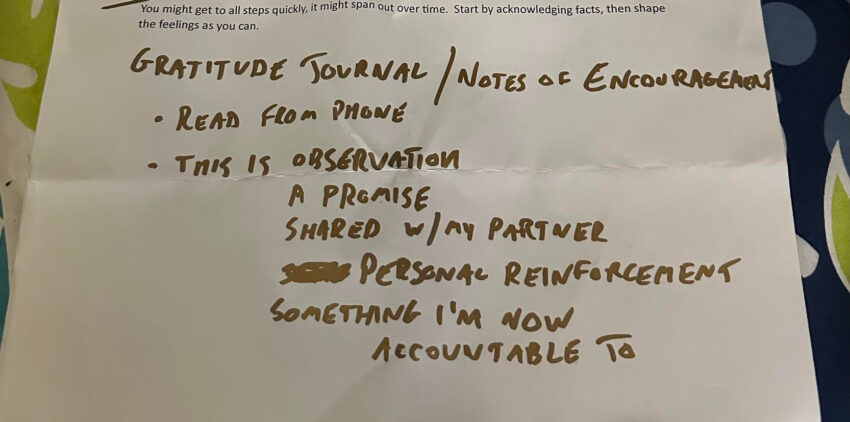 You might get to all steps quickly, it might span out over time. Start by acknowledging facts, then shape
the feelings as you can.
GRATITUDE JOURNAL / NOTES OF ENCOURAGEMENT
• READ FROM PHONE
• THIS IS OBSERVATION
A PROMISE
SHARED W/ MY PARTNER
PERSONAL REINFORCEMENT
SOMETHING I'M NOW
ACCOUNTABLE TO